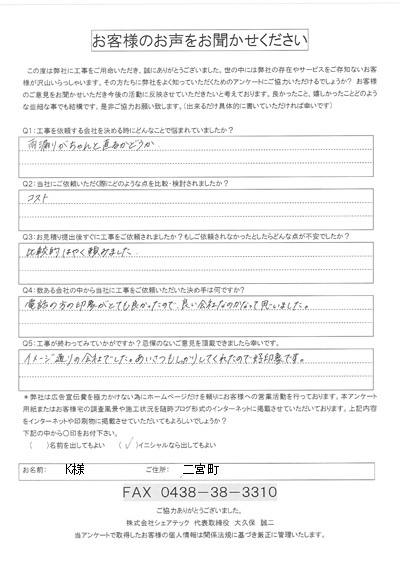 お客様のお声をお聞かせください
この度は弊社に工事をご用命いただき、誠にありがとうございました。世の中には弊社の存在やサービスをご存知ないお客
様が沢山いらっしゃいます。その方たちに弊社をよく知っていただくためのアンケートにご協力いただけるでしょうか? お客様
のご意見をお聞かせいただき今後の活動に反映させていただきたいと考えております。良かったこと、嬉しかったことどのよう
な些細な事でも結構です。是非ご協力お願い致します。(出来るだけ具体的に書いていただければ幸いです)
Q1:工事を依頼する会社を決める時にどんなことで悩まれていましたか?
雨漏りがちゃんと直るかどうか
Q2:当社にご依頼いただく際にどのような点を比較・検討されましたか?
コスト
Q3:お見積り提出後すぐに工事をご依頼されましたか?もしご依頼されなかったとしたらどんな点が不安でしたか?
比較的はやく頼みました
Q4:数ある会社の中から当社に工事をご依頼いただいた決め手は何ですか?
電話の方の印象がとても良かったので、良い会社なのかなって思いました。
Q5:工事が終わってみていかがですか?忌憚のないご意見を頂戴できましたら幸いです。
イメージ通りの会社でした。あいさつもしっかりしてくれたので好印象です。
*弊社は広告宣伝費を極力かけない為にホームページだけを頼りにお客様への営業活動を行っております。本アンケート
用紙またはお客様宅の調査風景や施工状況を随時ブログ形式のインターネットに掲載させていただいております。上記内容
をインターネットや印刷物に掲載させていただいてもよろしいでしょうか?
下記の中から〇印をお付下さい。
( )名前を出してもよい (✓)イニシャルなら出してもよい
お名前: K様 ご住所: 二宮町
FAX 0438-38-3310
ご協力ありがとうございました。
株式会社シェアテック 代表取締役 大久保 誠二
当アンケートで取得したお客様の個人情報は関係法規に基づき厳正に管理いたします。